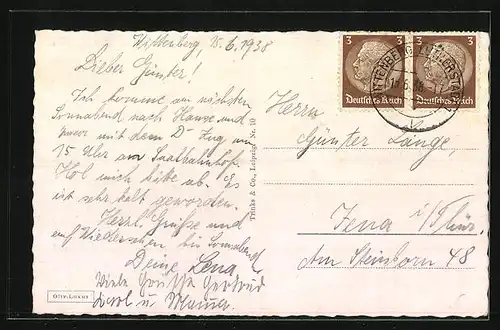 Wittenberg, 15.6.1938
Lieber Günter!
Ich komme am nächsten
Sonnabend nach Hause und
zwar mit dem D-Zug um
15 Uhr am Saalbahnhof.
Hol mich bitte ab. Es
ist sehr kalt geworden.
Herzl. Grüße und
auf Wiedersehen bis Sonnabend
Deine Lena
Viele Grüsse Gertrud
Karl u. Mama.
Offr.-Luxus
Trinks & Co., Leipzig, Nr. 10
3
Deutsches Reich
3
Deutsches Reich
WITTENBERG LUTHERSTADT
Herrn
Günter Lange,
Jena i/Thür.
Am Steinborn 48